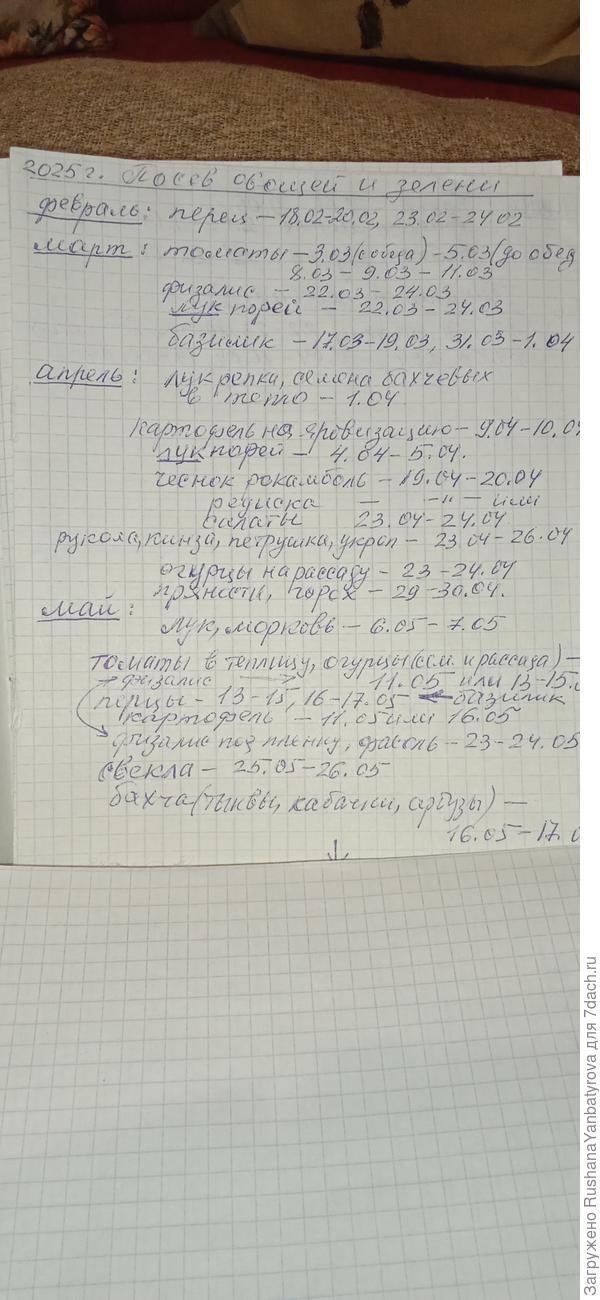 2025г. Посев овощей и зелени
февраль: перец – 18.02-20.02, 23.02-24.02
март: томаты – 3.03 (с обеда) - 5.03 (до обед
8.03 – 9.03 – 11.03
физалис – 22.03 – 24.03
лук порей – 22.03 – 24.03
базилик – 17.03 – 19.03, 31.03 – 1.04
апрель: лук репка, семена бахчевых
в тепло – 1.04
картофель на яровизацию – 9.04 – 10.04
лук порей – 4.04 – 5.04.
чеснок рокамболь – 19.04 – 20.04
редиска – -"- – или
салаты 23.04 – 24.04
рукола, кинза, петрушка, укроп – 23.04 – 26.04
огурцы на рассаду – 23 – 24.04
пряности, горох – 29 – 30.04.
май:
лук, морковь – 6.05 – 7.05
томаты в теплицу, огурцы (сем. и рассада) –
физалис → 11.05 или 13-15.0
перцы – 13-15, 16-17.05 ← базилик
картофель – 11.05 или 16.05
физалис под плёнку, фасоль – 23-24.05
свекла – 25.05-26.05
бахча (тыквы, кабачки, арбузы) –
16.05 – 17.0
↓
Загружено RushanaYanbatyrova для 7dach.ru